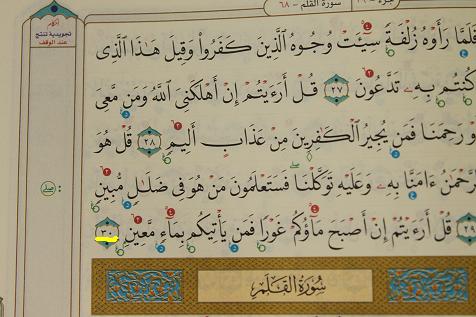 جزء ٢٩ سورة القلم - ٦٨
أحكام
تجويدية تنتج
عند الوقف
فَلَمَّا رَأَوْهُ زُلْفَةً سِيٓـَٔتْ وُجُوهُ ٱلَّذِينَ كَفَرُوا۟ وَقِيلَ هَـٰذَا ٱلَّذِى
كُنتُم بِهِۦ تَدَّعُونَ ٢٧ قُلْ أَرَءَيْتُمْ إِنْ أَهْلَكَنِىَ ٱللَّهُ وَمَن مَّعِىَ
أَوْ رَحِمَنَا فَمَن يُجِيرُ ٱلْكَـٰفِرِينَ مِنْ عَذَابٍ أَلِيمٍ ٢٨ قُلْ هُوَ
ٱلرَّحْمَـٰنُ ءَامَنَّا بِهِۦ وَعَلَيْهِ تَوَكَّلْنَا ۖ فَسَتَعْلَمُونَ مَنْ هُوَ فِى ضَلَـٰلٍ مُّبِينٍ
٢٩ قُلْ أَرَءَيْتُمْ إِنْ أَصْبَحَ مَآؤُكُمْ غَوْرًا فَمَن يَأْتِيكُم بِمَآءٍ مَّعِينٍۭ ٣٠
سُورَةُ القَلَمِ